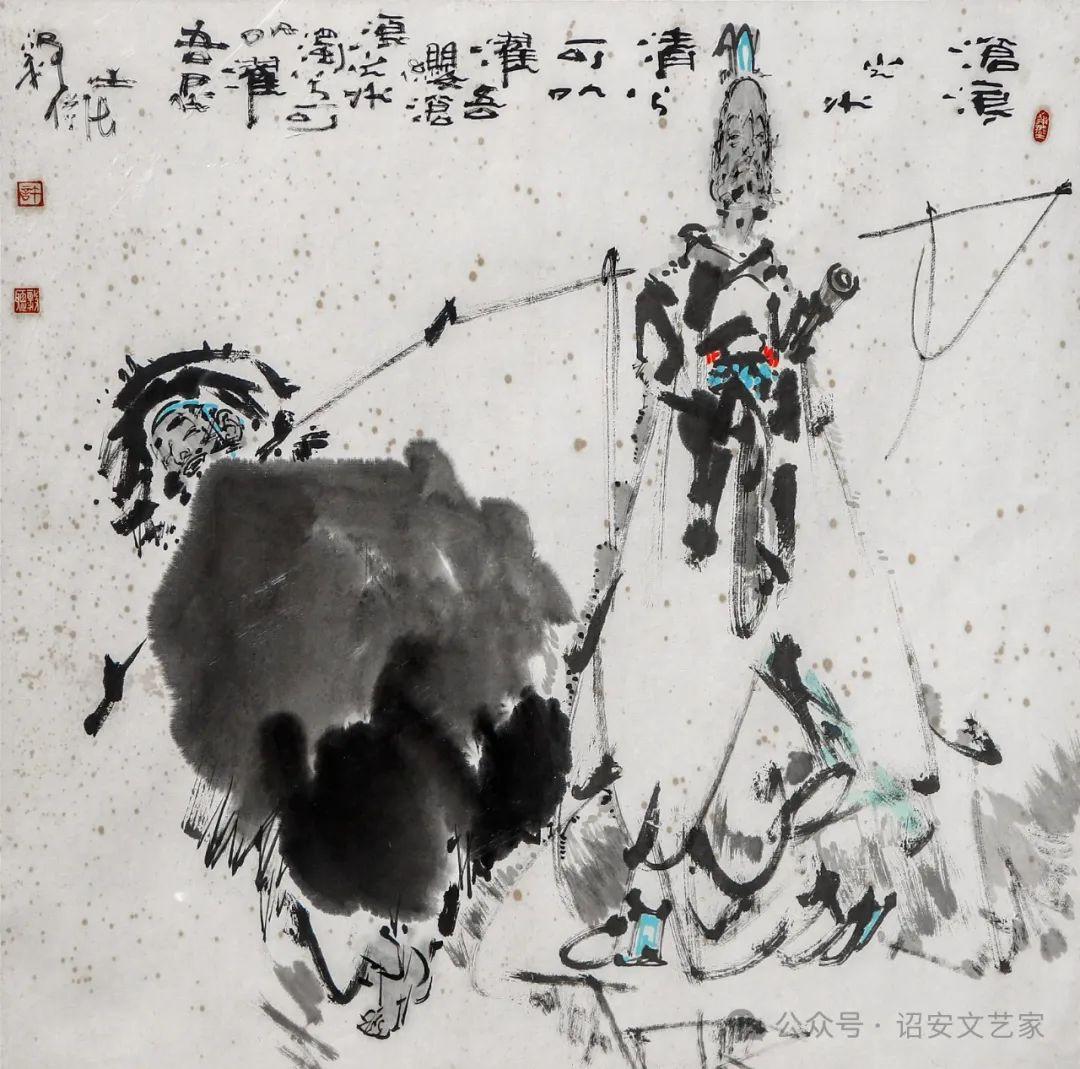 滄浪
之水
清兮
可以
濯吾
纓滄
浪之水
濁兮可
以濯
吾足
許
公众号 · 诏安文艺家